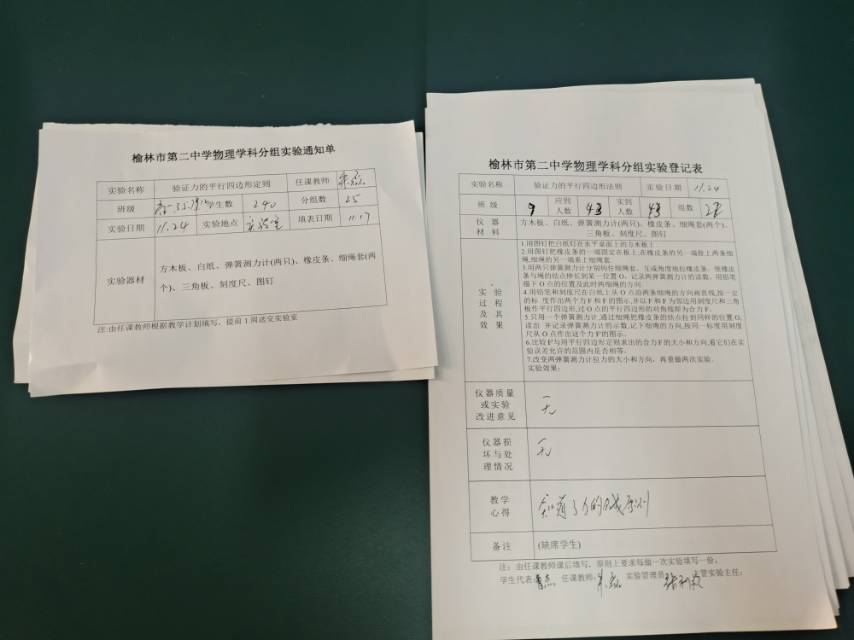 榆林市第二中学物理学科分组实验通知单
实验名称 验证力的平行四边形定则 任课教师
班级 学生数 240 分组数 25
实验日期 11.24 实验地点 实验室 填表日期 11.17
实验器材
方木板、白纸、弹簧测力计(两只)、橡皮条、细绳套(两
个)、三角板、刻度尺、图钉
注:由任课教师根据教学计划填写,提前1周送交实验室
榆林市第二中学物理学科分组实验登记表
实验名称 验证力的平行四边形法则 实验日期 11.24
班级 9 应到人数 43 实到人数 43 组数
仪器材料
方木板、白纸、弹簧测力计(两只)、橡皮条、细绳套(两个)、
三角板、刻度尺、图钉
实验过程及其效果
1.用图钉把白纸钉在水平桌面上的方木板上
2.用图钉把橡皮条的一端固定在板上,在橡皮条的另一端拴上两条细
绳,细绳的另一端系上细绳套.
3.用两只弹簧测力计分别钩住细绳套,互成角度地拉橡皮条,使橡皮
条与绳的结点伸长到某一位置O,记录两弹簧测力计的读数,用铅笔
描下O点的位置及此时两细绳的方向
4.用铅笔和刻度尺在白纸上从O点沿两条细绳的方向画直线,按一定
的标度作出两个力F和F的图示,并以F和F为邻边用刻度尺和三角
板作平行四边形,过O点的平行四边形的对角线即为合力F.
5.只用一个弹簧测力计,通过细绳把橡皮条的结点拉到同样的位置O,
读出并记录弹簧测力计的示数,记下细绳的方向,按同一标度用刻度
尺从O点作出这个力F的图示.
6.比较F与用平行四边形定则求出的合力F的大小和方向,看它们在实
验误差允许的范围内是否相等.
7.改变两弹簧测力计拉力的大小和方向,再重做两次实验.
实验效果:
仪器质量或实验改进意见 无
仪器损坏与处理情况 无
教学心得 知道了力的合成原则
备注 (缺席学生)
注:由任课教师课后填写,原则上要求每做一次实验填写一份。
学生代表: 任课教师: 实验管理员: 主管实验主任: